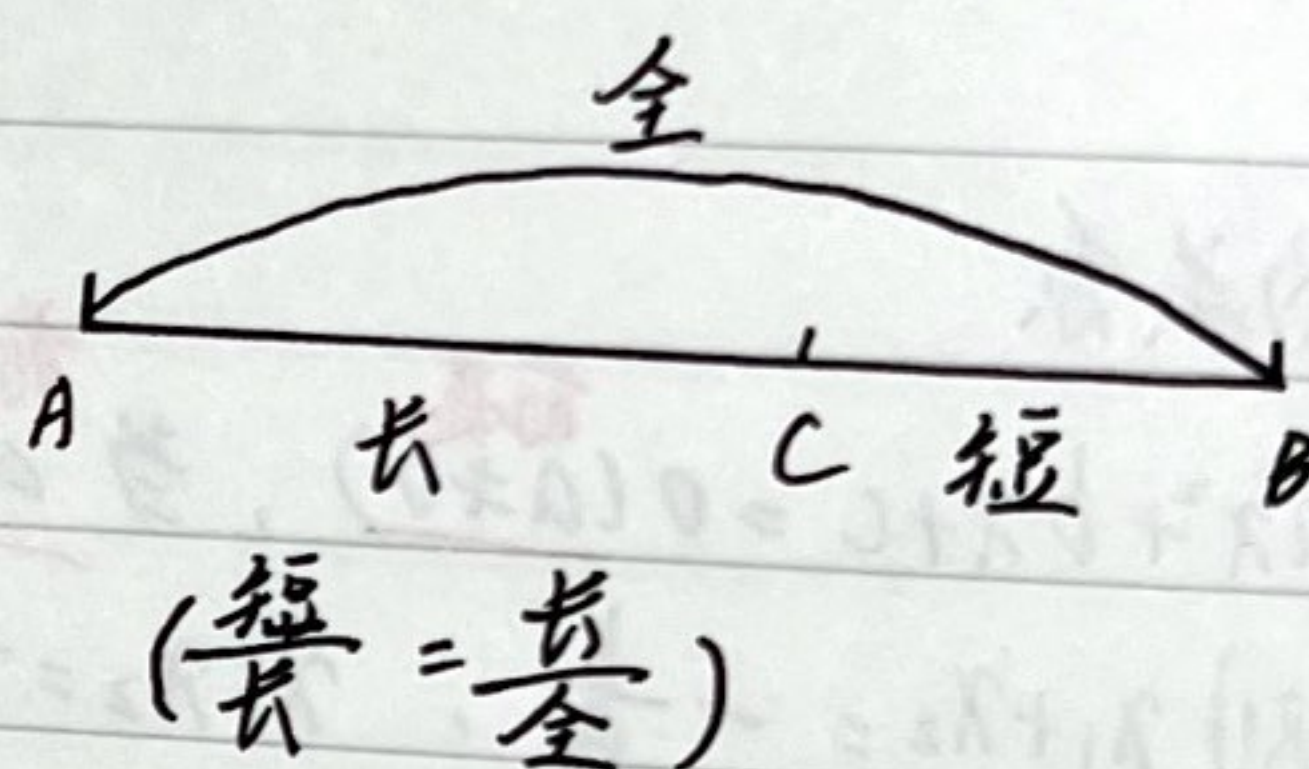 全
A 长 C 短 B
(短/长 = 长/全)